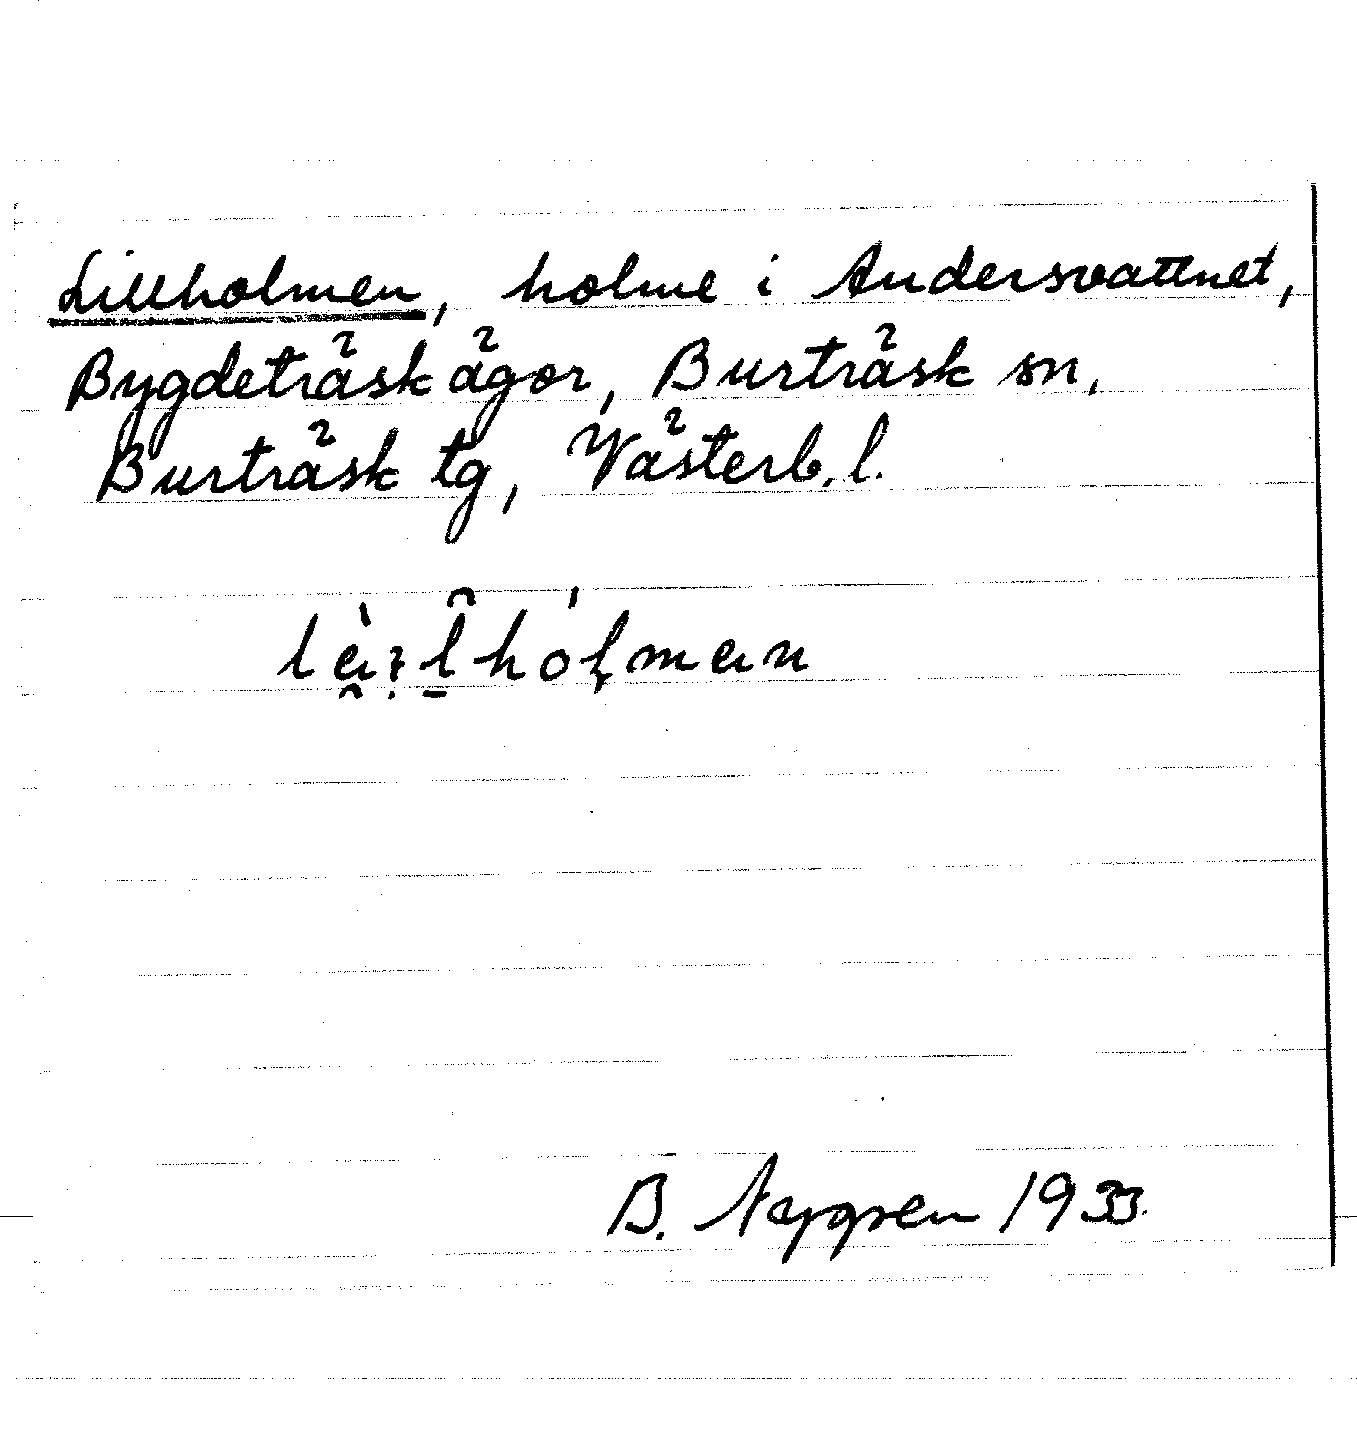 Lillholmen, holme i Andersvattnet,
Bygdeträsk ägor, Burträsk sn,
Burträsk tg, Västerb. l.
B. Nygren 1933.